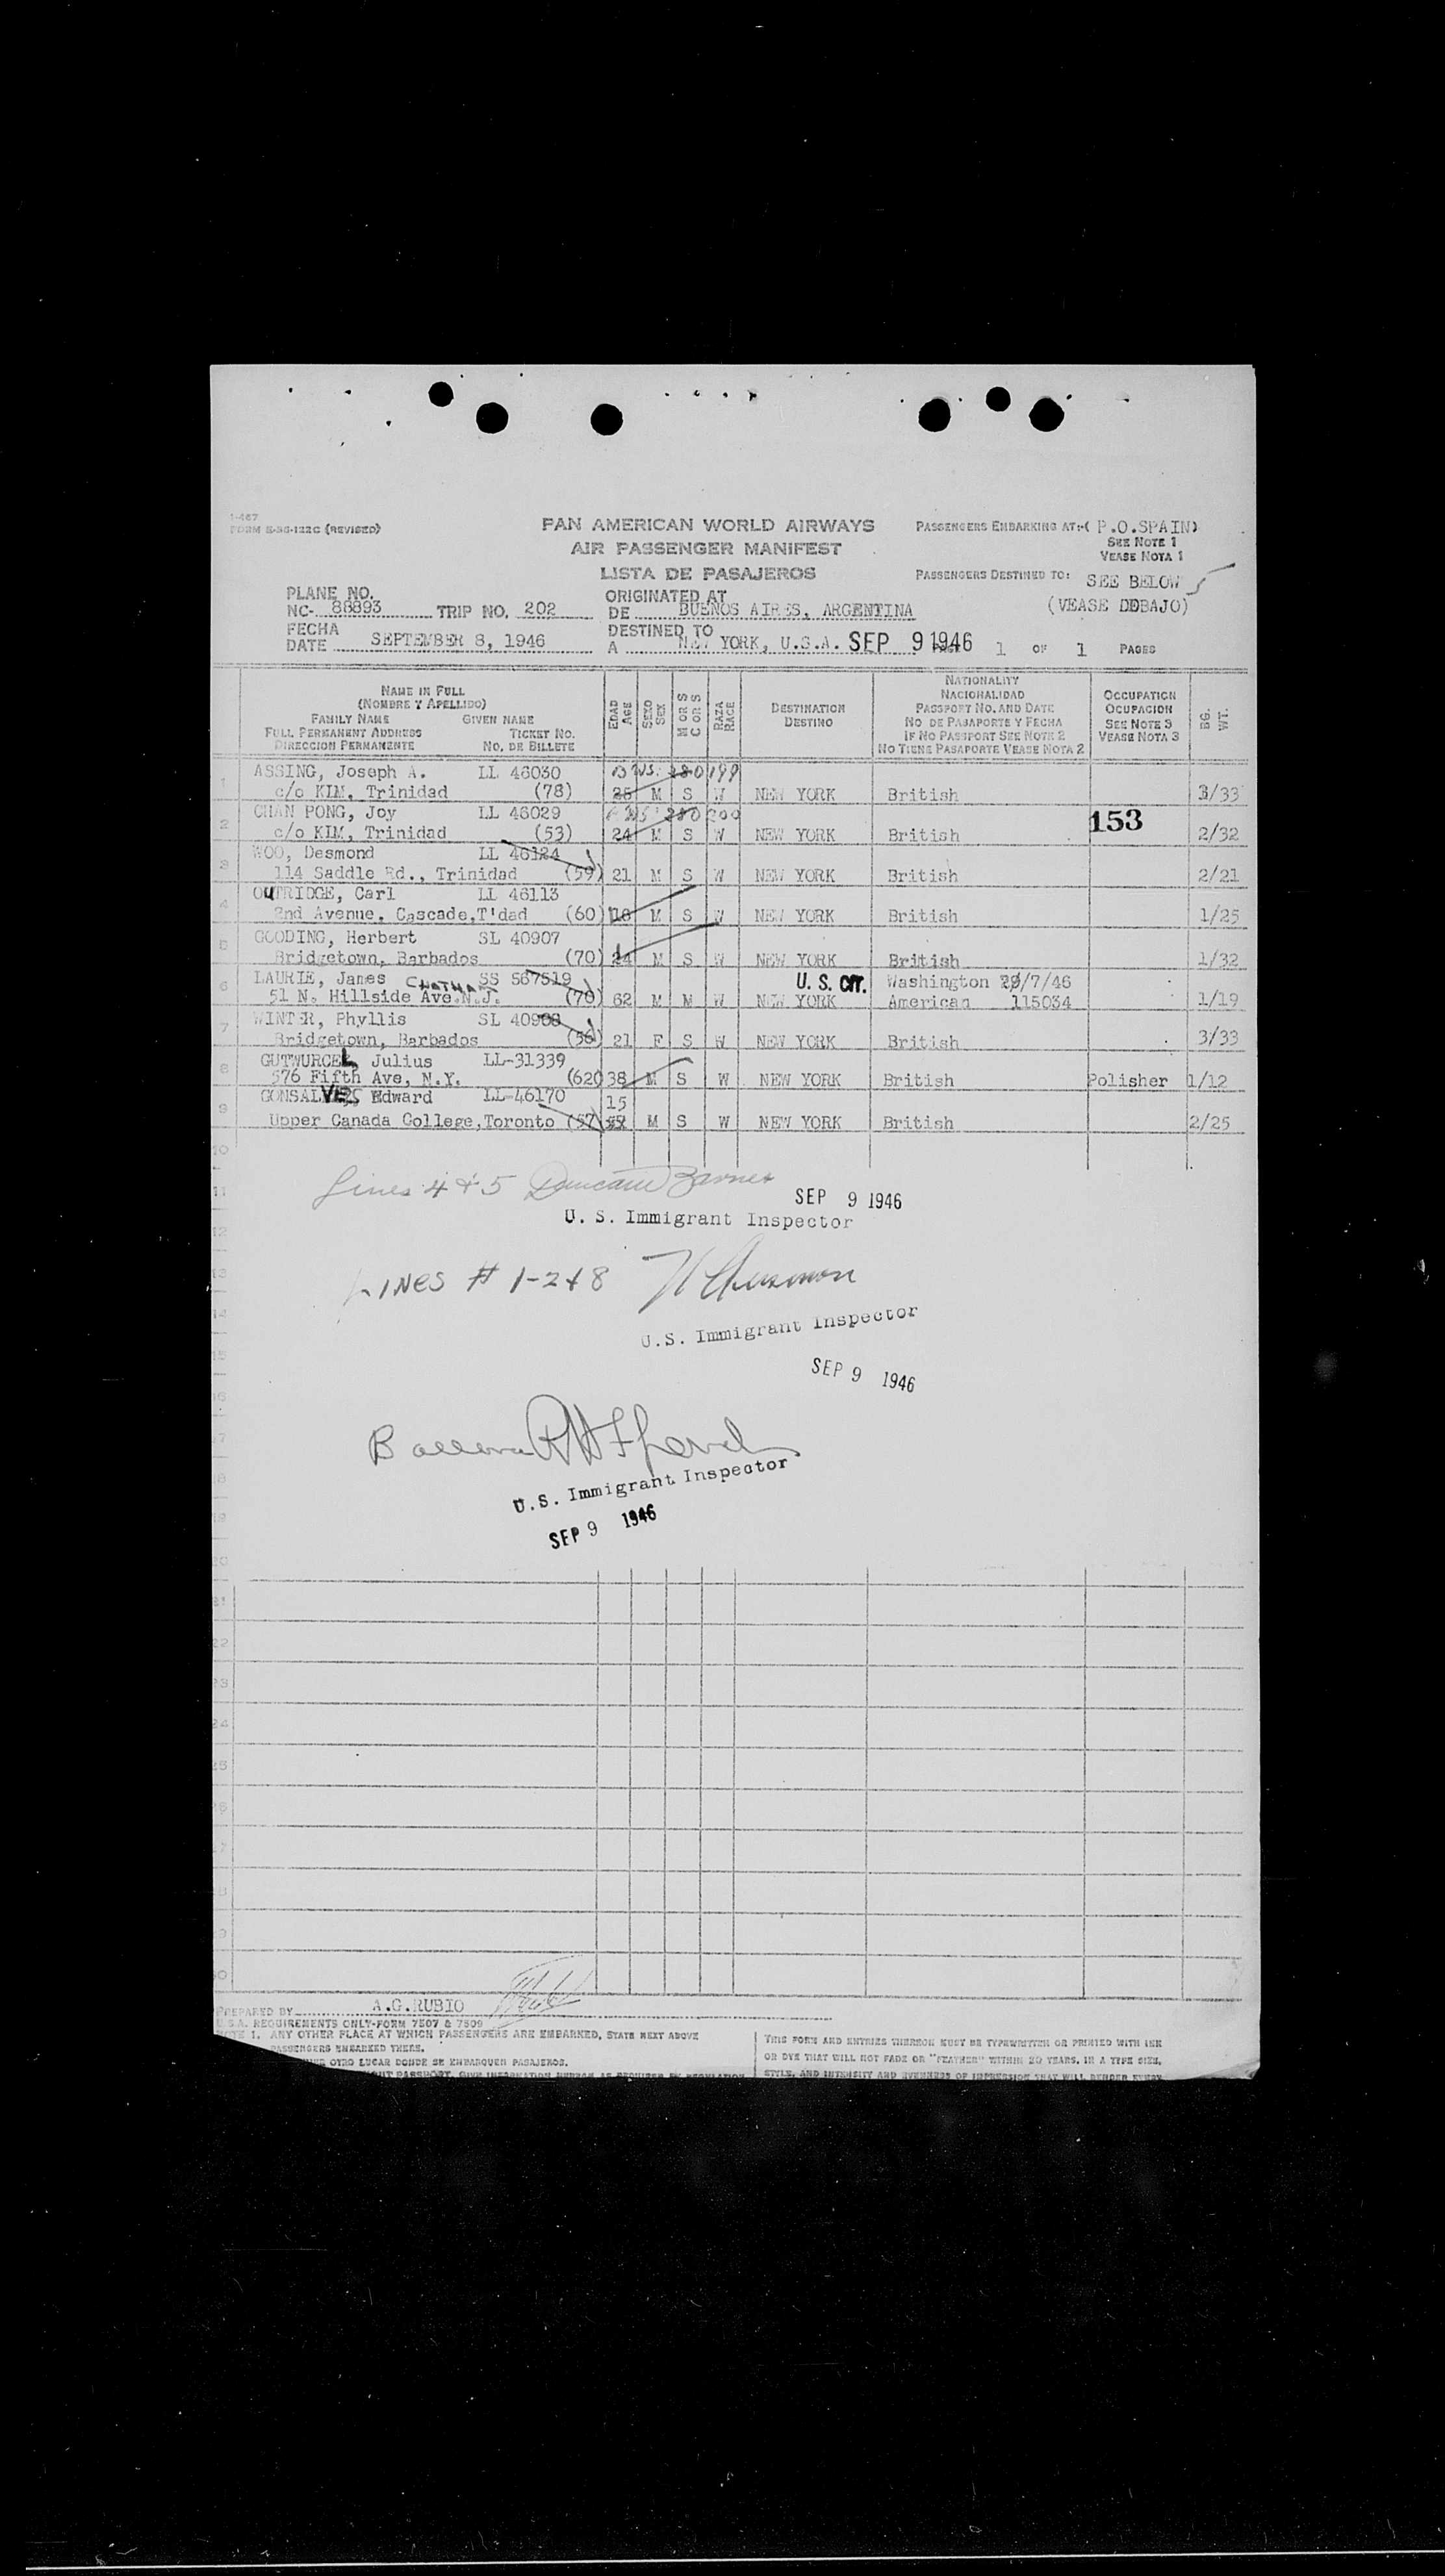 I-467
FORM E-3G-122C (REVISED)
PAN AMERICAN WORLD AIRWAYS
AIR PASSENGER MANIFEST
LISTA DE PASAJEROS
PASSENGERS EMBARKING AT:-( P.O.SPAIN)
SEE NOTE 1
VEASE NOTA 1
PASSENGERS DESTINED TO: SEE BELOW
(VEASE DEBAJO)
PLANE NO.
NC- 88893 TRIP NO. 202
ORIGINATED AT
DE BUENOS AIRES, ARGENTINA
FECHA
DATE SEPTEMBER 8, 1946
DESTINED TO
A NEW YORK, U.S.A. SEP 9 1946 1 OF 1 PAGES
NAME IN FULL
(NOMBRE Y APELLIDO)
FAMILY NAME GIVEN NAME
FULL PERMANENT ADDRESS TICKET NO.
DIRECCION PERMANENTE NO. DE BILLETE
EDAD AGE
SEXO SEX
M OR S C OR S
RAZA RACE
DESTINATION
DESTINO
NATIONALITY
NACIONALIDAD
PASSPORT NO. AND DATE
NO DE PASAPORTE Y FECHA
IF NO PASSPORT SEE NOTE 2
NO TIENE PASAPORTE VEASE NOTA 2
OCCUPATION
OCUPACION
SEE NOTE 3
VEASE NOTA 3
BG. WT.
1 ASSING, Joseph A. LL 46030
c/o KIM, Trinidad (78) M S W NEW YORK British 3/33
2 CHAN PONG, Joy LL 46029 153
c/o KIM, Trinidad (53) 24 M S W NEW YORK British 2/32
3 WOO, Desmond LL 46124
114 Saddle Rd., Trinidad (59) 21 M S W NEW YORK British 2/21
4 OUTRIDGE, Carl LL 46113
2nd Avenue, Cascade,T'dad (60) 18 M S W NEW YORK British 1/25
5 GOODING, Herbert SL 40907
Bridgetown, Barbados (70) 24 M S W NEW YORK British 1/32
6 LAURIE, James CHATHAM SS 567519 U.S. CIT. Washington /7/46
51 N. Hillside Ave.N.J. (70) 62 M M W NEW YORK American 115034 1/19
7 WINTER, Phyllis SL 40908
Bridgetown, Barbados (56) 21 F S W NEW YORK British 3/33
8 GUTWURCEL, Julius LL-31339
576 Fifth Ave, N.Y. (620 38 M S W NEW YORK British Polisher 1/12
9 GONSALVES, Edward LL-46170 15
Upper Canada College,Toronto (57) M S W NEW YORK British 2/25
10
11
Lines 4 & 5 Duncan Barnes SEP 9 1946
12
U. S. Immigrant Inspector
13
LINES # 1-2 & 8
14
U.S. Immigrant Inspector
15
SEP 9 1946
16
17
18
U.S. Immigrant Inspector
19
SEP 9 1946
20
21
22
23
24
25
26
PREPARED BY A.G.RUBIO
U.S.A. REQUIREMENTS ONLY-FORM 7507 & 7509
NOTE 1. ANY OTHER PLACE AT WHICH PASSENGERS ARE EMBARKED, STATE NEXT ABOVE
PASSENGERS EMBARKED THERE.
OTRO LUGAR DONDE SE EMBARQUEN PASAJEROS.
THIS FORM AND ENTRIES THEREON MUST BE TYPEWRITTEN OR PRINTED WITH INK
OR DYE THAT WILL NOT FADE OR "FEATHER" WITHIN 20 YEARS, IN A TYPE SIZE,
STYLE, AND INTENSITY AND EVENNESS OF IMPRESSION THAT WILL RENDER EVERY